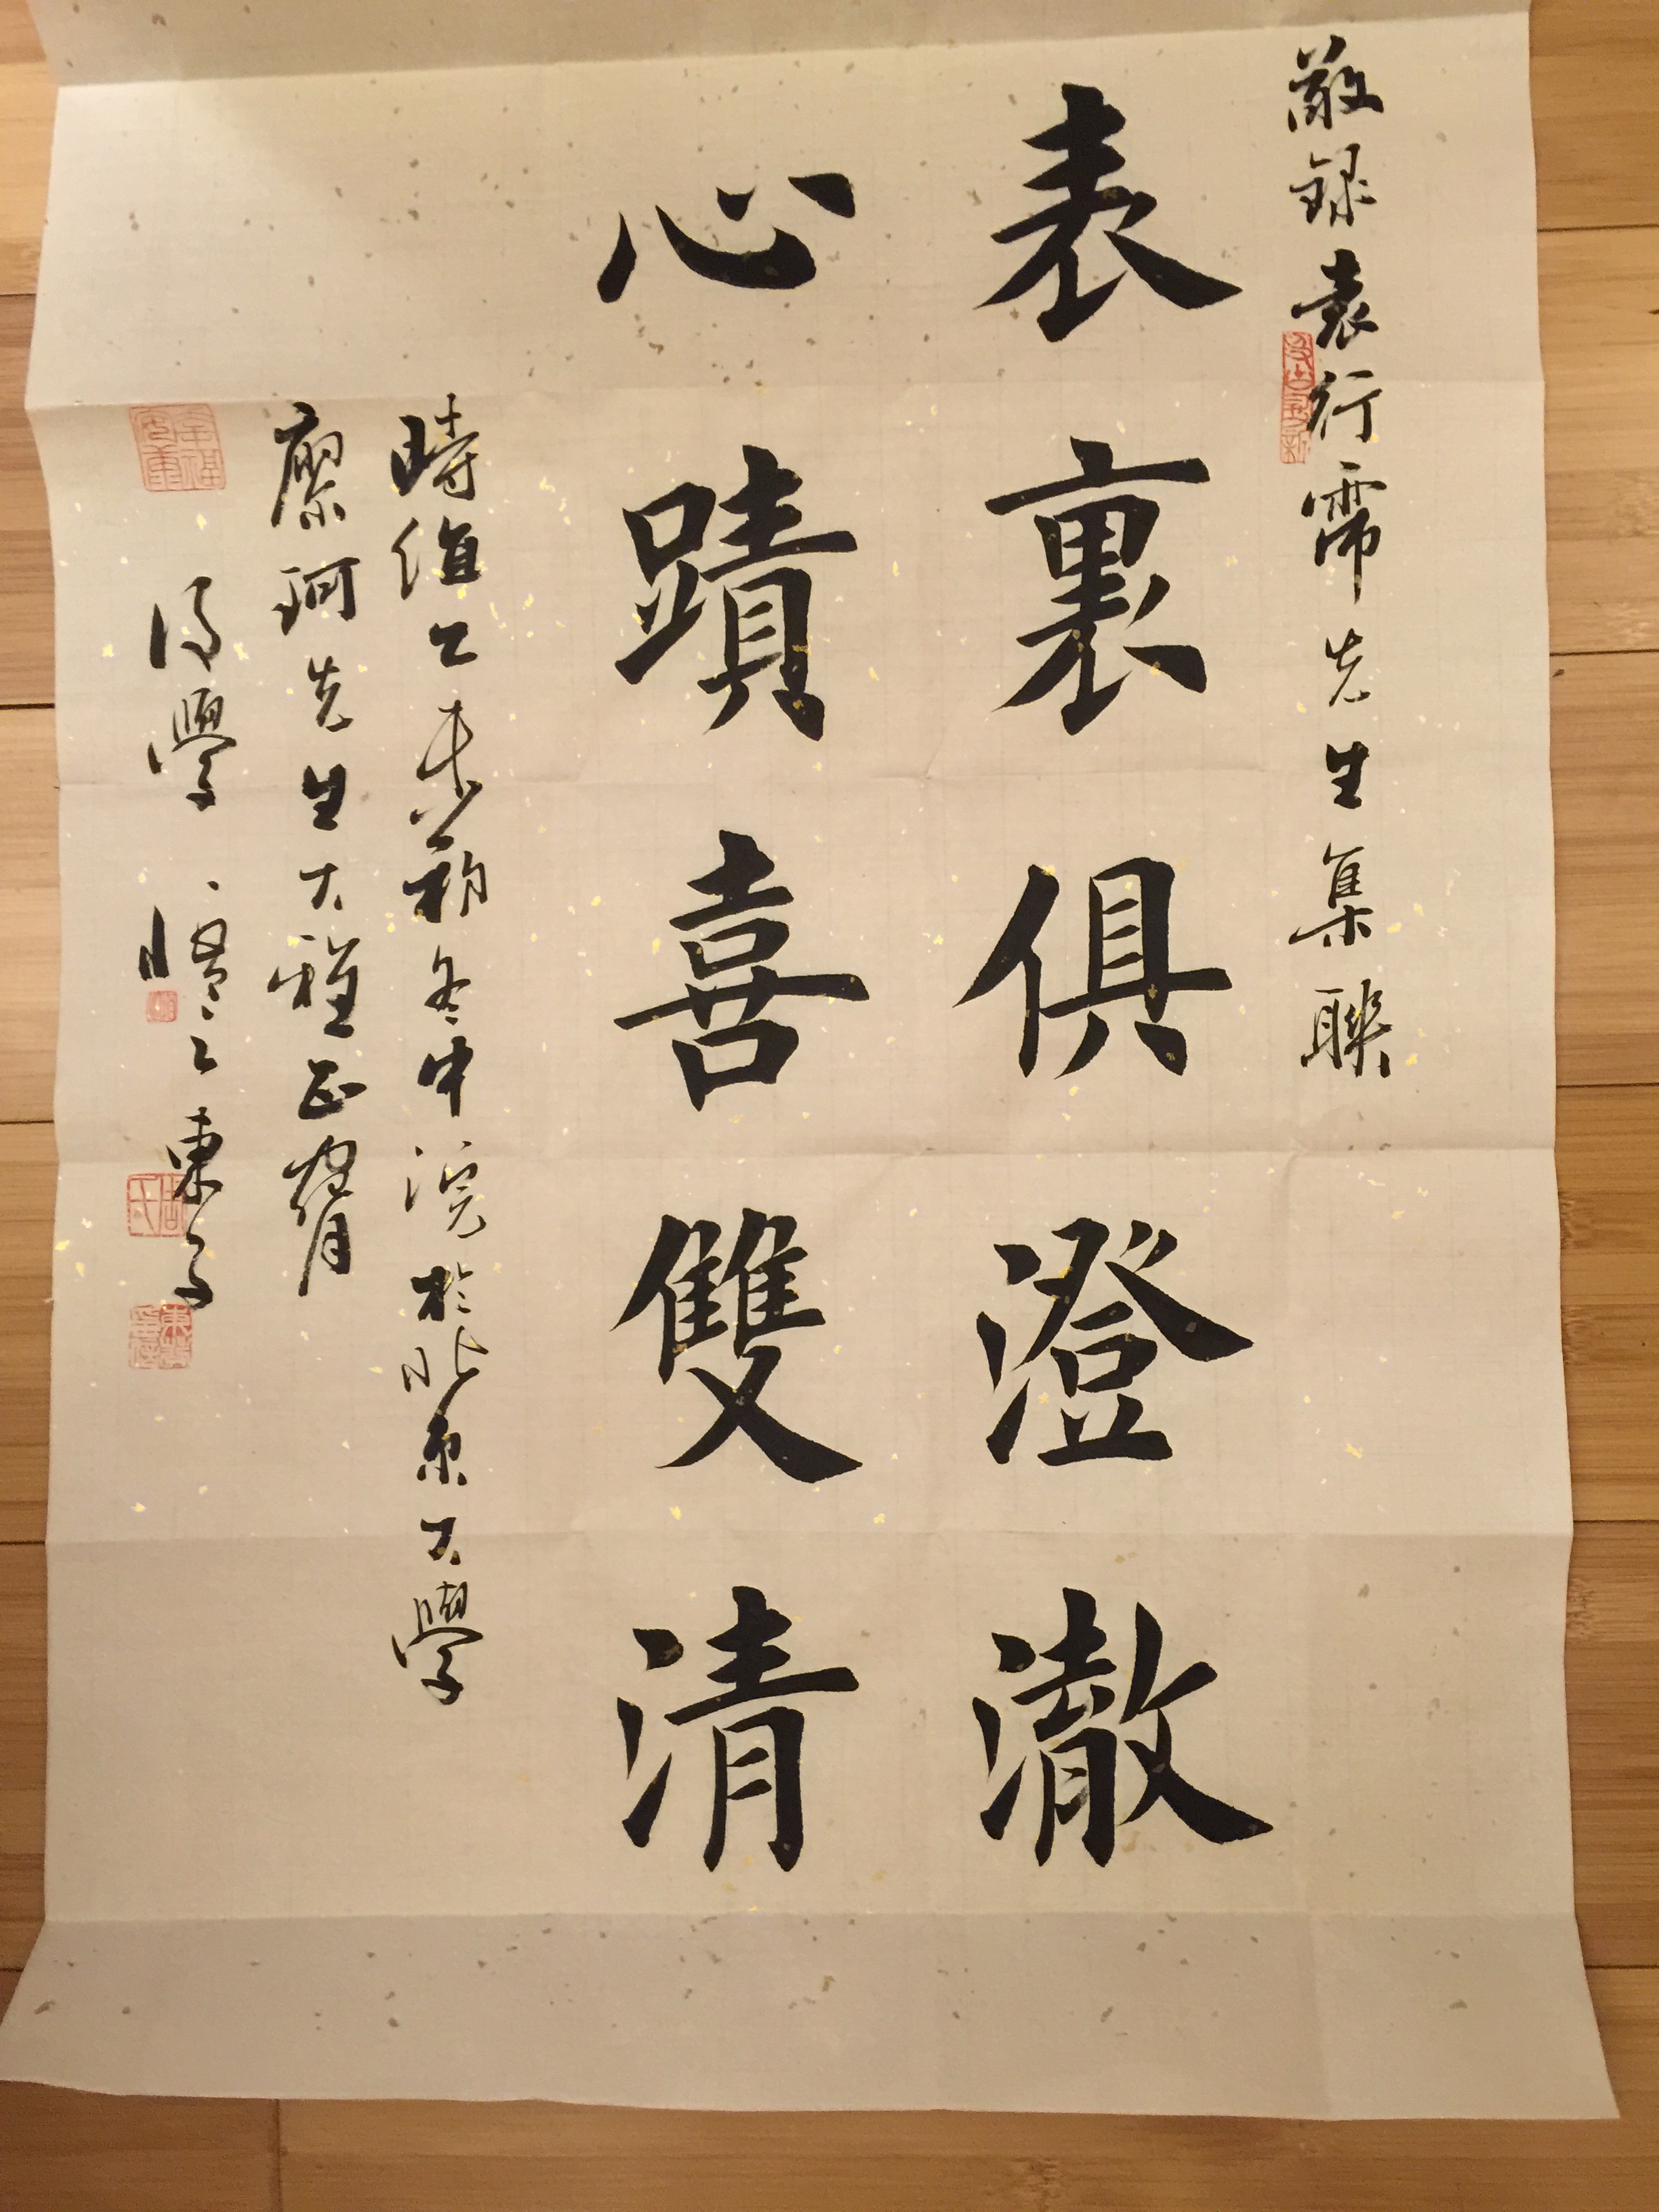 敬録袁行霈先生集聯
表裏俱澄澈
心蹟喜雙清
時維乙未初冬中浣於北京大學
縻珂先生大雅正腕
後學
東